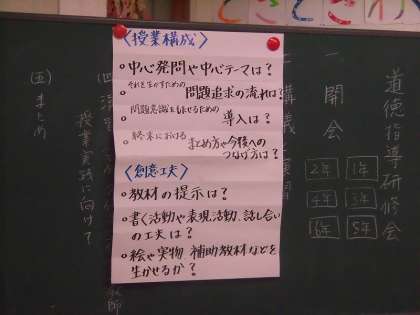 〈授業構成〉
・中心発問や中心テーマは?
それを生かすための
問題追求の流れは?
問題意識をもたせるための
導入は?
終末における
まとめ方や今後への
つなげ方は?
〈創意工夫〉
・教材の提示は?
・書く活動や表現活動、話し合い
の工夫は?
・絵や実物 補助教材などを
生かせるか?
道徳指導研修会
一 開会
1年
2年
3年
4年
5年
6年
講義
授業実践に向けて
(五)まとめ